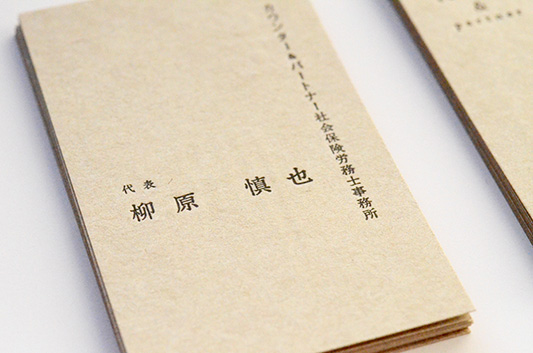 カウンター&パートナー社会保険労務士事務所
代表
柳原 慎也
&
partner